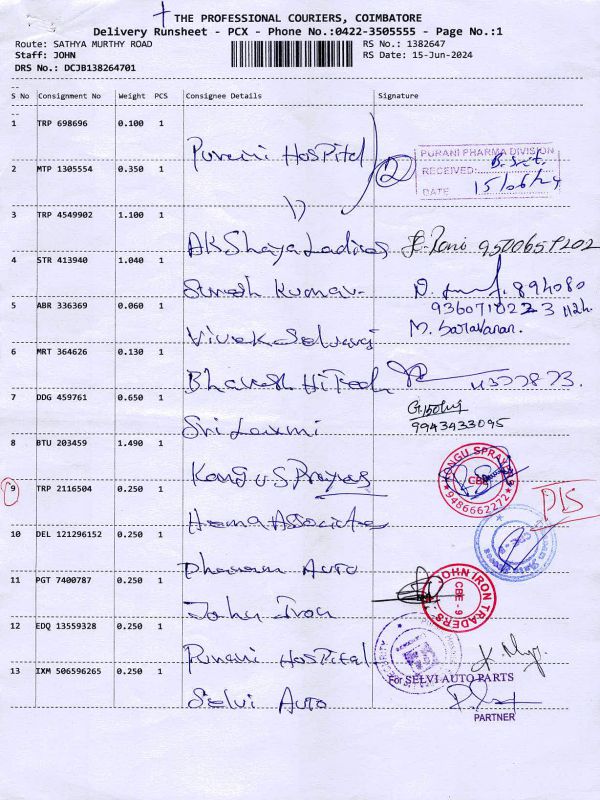 THE PROFESSIONAL COURIERS, COIMBATORE
Delivery Runsheet - PCX - Phone No.:0422-3505555 - Page No.:1
Route: SATHYA MURTHY ROAD
RS No.: 1382647
Staff: JOHN
RS Date: 15-Jun-2024
DRS No.: DCJB138264701
S No Consignment No Weight PCS Consignee Details Signature
1 TRP 698696 0.100 1
Purani Hospital
2
PURANI PHARMA DIVISION
RECEIVED:
DATE 15/06/24
2 MTP 1305554 0.350 1
3 TRP 4549902 1.100 1
Akshaya Ladies
4 STR 413940 1.040 1
Suresh Kumar
9360710223
5 ABR 336369 0.060 1
M. Saravanan.
Vivek Selvaraj
6 MRT 364626 0.130 1
Bharath HiTech
7 DDG 459761 0.650 1
Sri Laxmi
9943433095
8 BTU 203459 1.490 1
Kongu Sprayas
KONGU SPRAY
CBE
9486662272
9 TRP 2116504 0.250 1
Hema Associates
D/S
10 DEL 121296152 0.250 1
Dhanam Auto
11 PGT 7400787 0.250 1
John Iron
JOHN IRON TRADERS
CBE - 9
12 EDQ 13559328 0.250 1
Purani Hospital
13 IXM 506596265 0.250 1
Selvi Auto
For SELVI AUTO PARTS
PARTNER